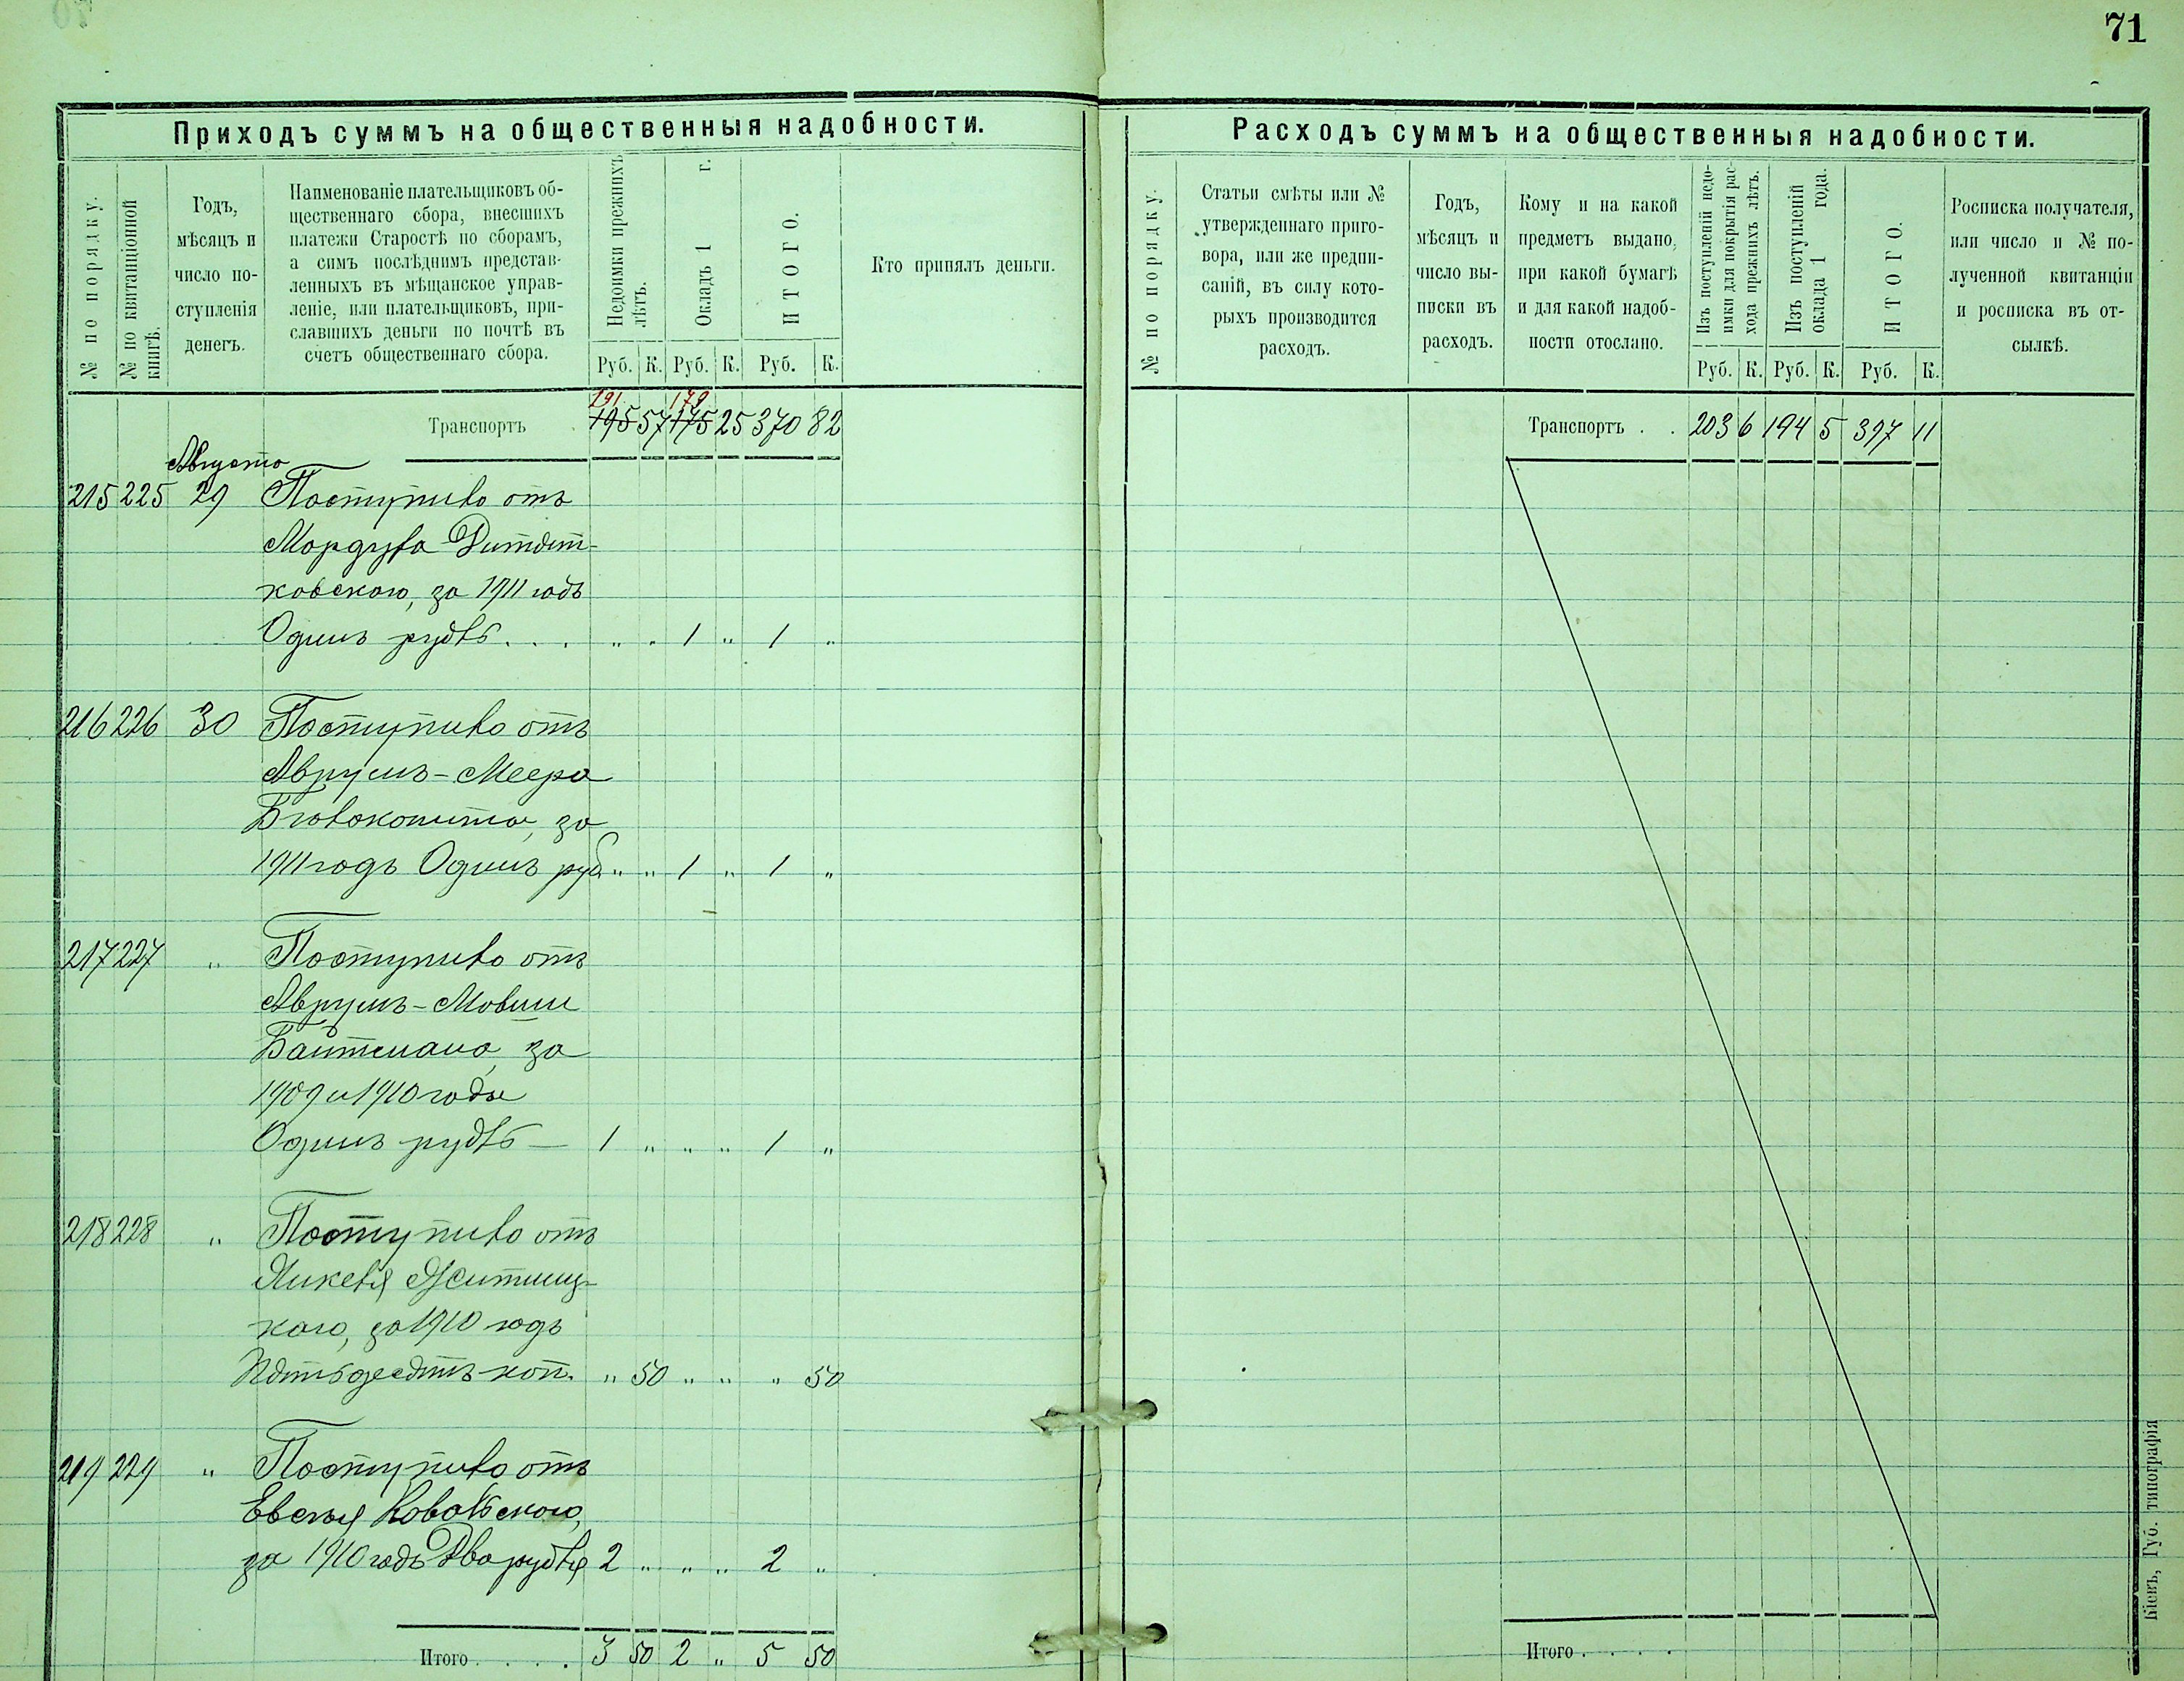 71
Приходъ суммъ на общественныя надобности.
№ по порядку.
№ по квитанціонной
книгѣ.
Годъ,
мѣсяцъ и
число по-
ступленія
денегъ.
Наименованіе плательщиковъ об-
щественнаго сбора, внесшихъ
платежи Старостѣ по сборамъ,
а симъ послѣднимъ представ-
ленныхъ въ мѣщанское управ-
леніе, или плательщиковъ, при-
славшихъ деньги по почтѣ въ
счетъ общественнаго сбора.
Недоимки прежнихъ
лѣтъ.
Окладъ 1 г.
ИТОГО.
Руб. К. Руб. К. Руб. К.
Кто принялъ деньги.
191 179
Транспортъ 195 57 175 25 370 82
Августа
215 225 29 Поступило отъ
Мордуха
ковского, за 1911 годъ
Одинъ рубль . . . " " 1 " 1 "
216 226 30 Поступило отъ
Аврумъ-Меера
за
1911 годъ Одинъ руб. " " 1 " 1 "
217 227 " Поступило отъ
Аврумъ-Мовши
Байтмана, за
1909 и 1910 годы
Одинъ рубль — 1 " " " 1 "
218 228 " Поступило отъ
Янкеля Житниц-
кого, за 1910 годъ
Пятьдесятъ коп. " 50 " " " 50
219 229 " Поступило отъ
Евселя Ковальского,
за 1910 годъ Два рубля 2 " " " 2 "
Итого . . . . 3 50 2 " 5 50
Расходъ суммъ на общественныя надобности.
№ по порядку.
Статьи смѣты или №
утвержденнаго приго-
вора, или же предпи-
саній, въ силу кото-
рыхъ производится
расходъ.
Годъ,
мѣсяцъ и
число вы-
писки въ
расходъ.
Кому и на какой
предметъ выдано,
при какой бумагѣ
и для какой надоб-
ности отослано.
Изъ поступленій недо-
имки для покрытія рас
хода прежнихъ лѣтъ.
Изъ поступленій
оклада 1 года.
ИТОГО.
Руб. К. Руб. К. Руб. К.
Росписка получателя,
или число и № по-
лученной квитанціи
и росписка въ от-
сылкѣ.
Транспортъ . . 203 6 194 5 397 11
Итого . . . .
Кіевъ, Губ. типографія